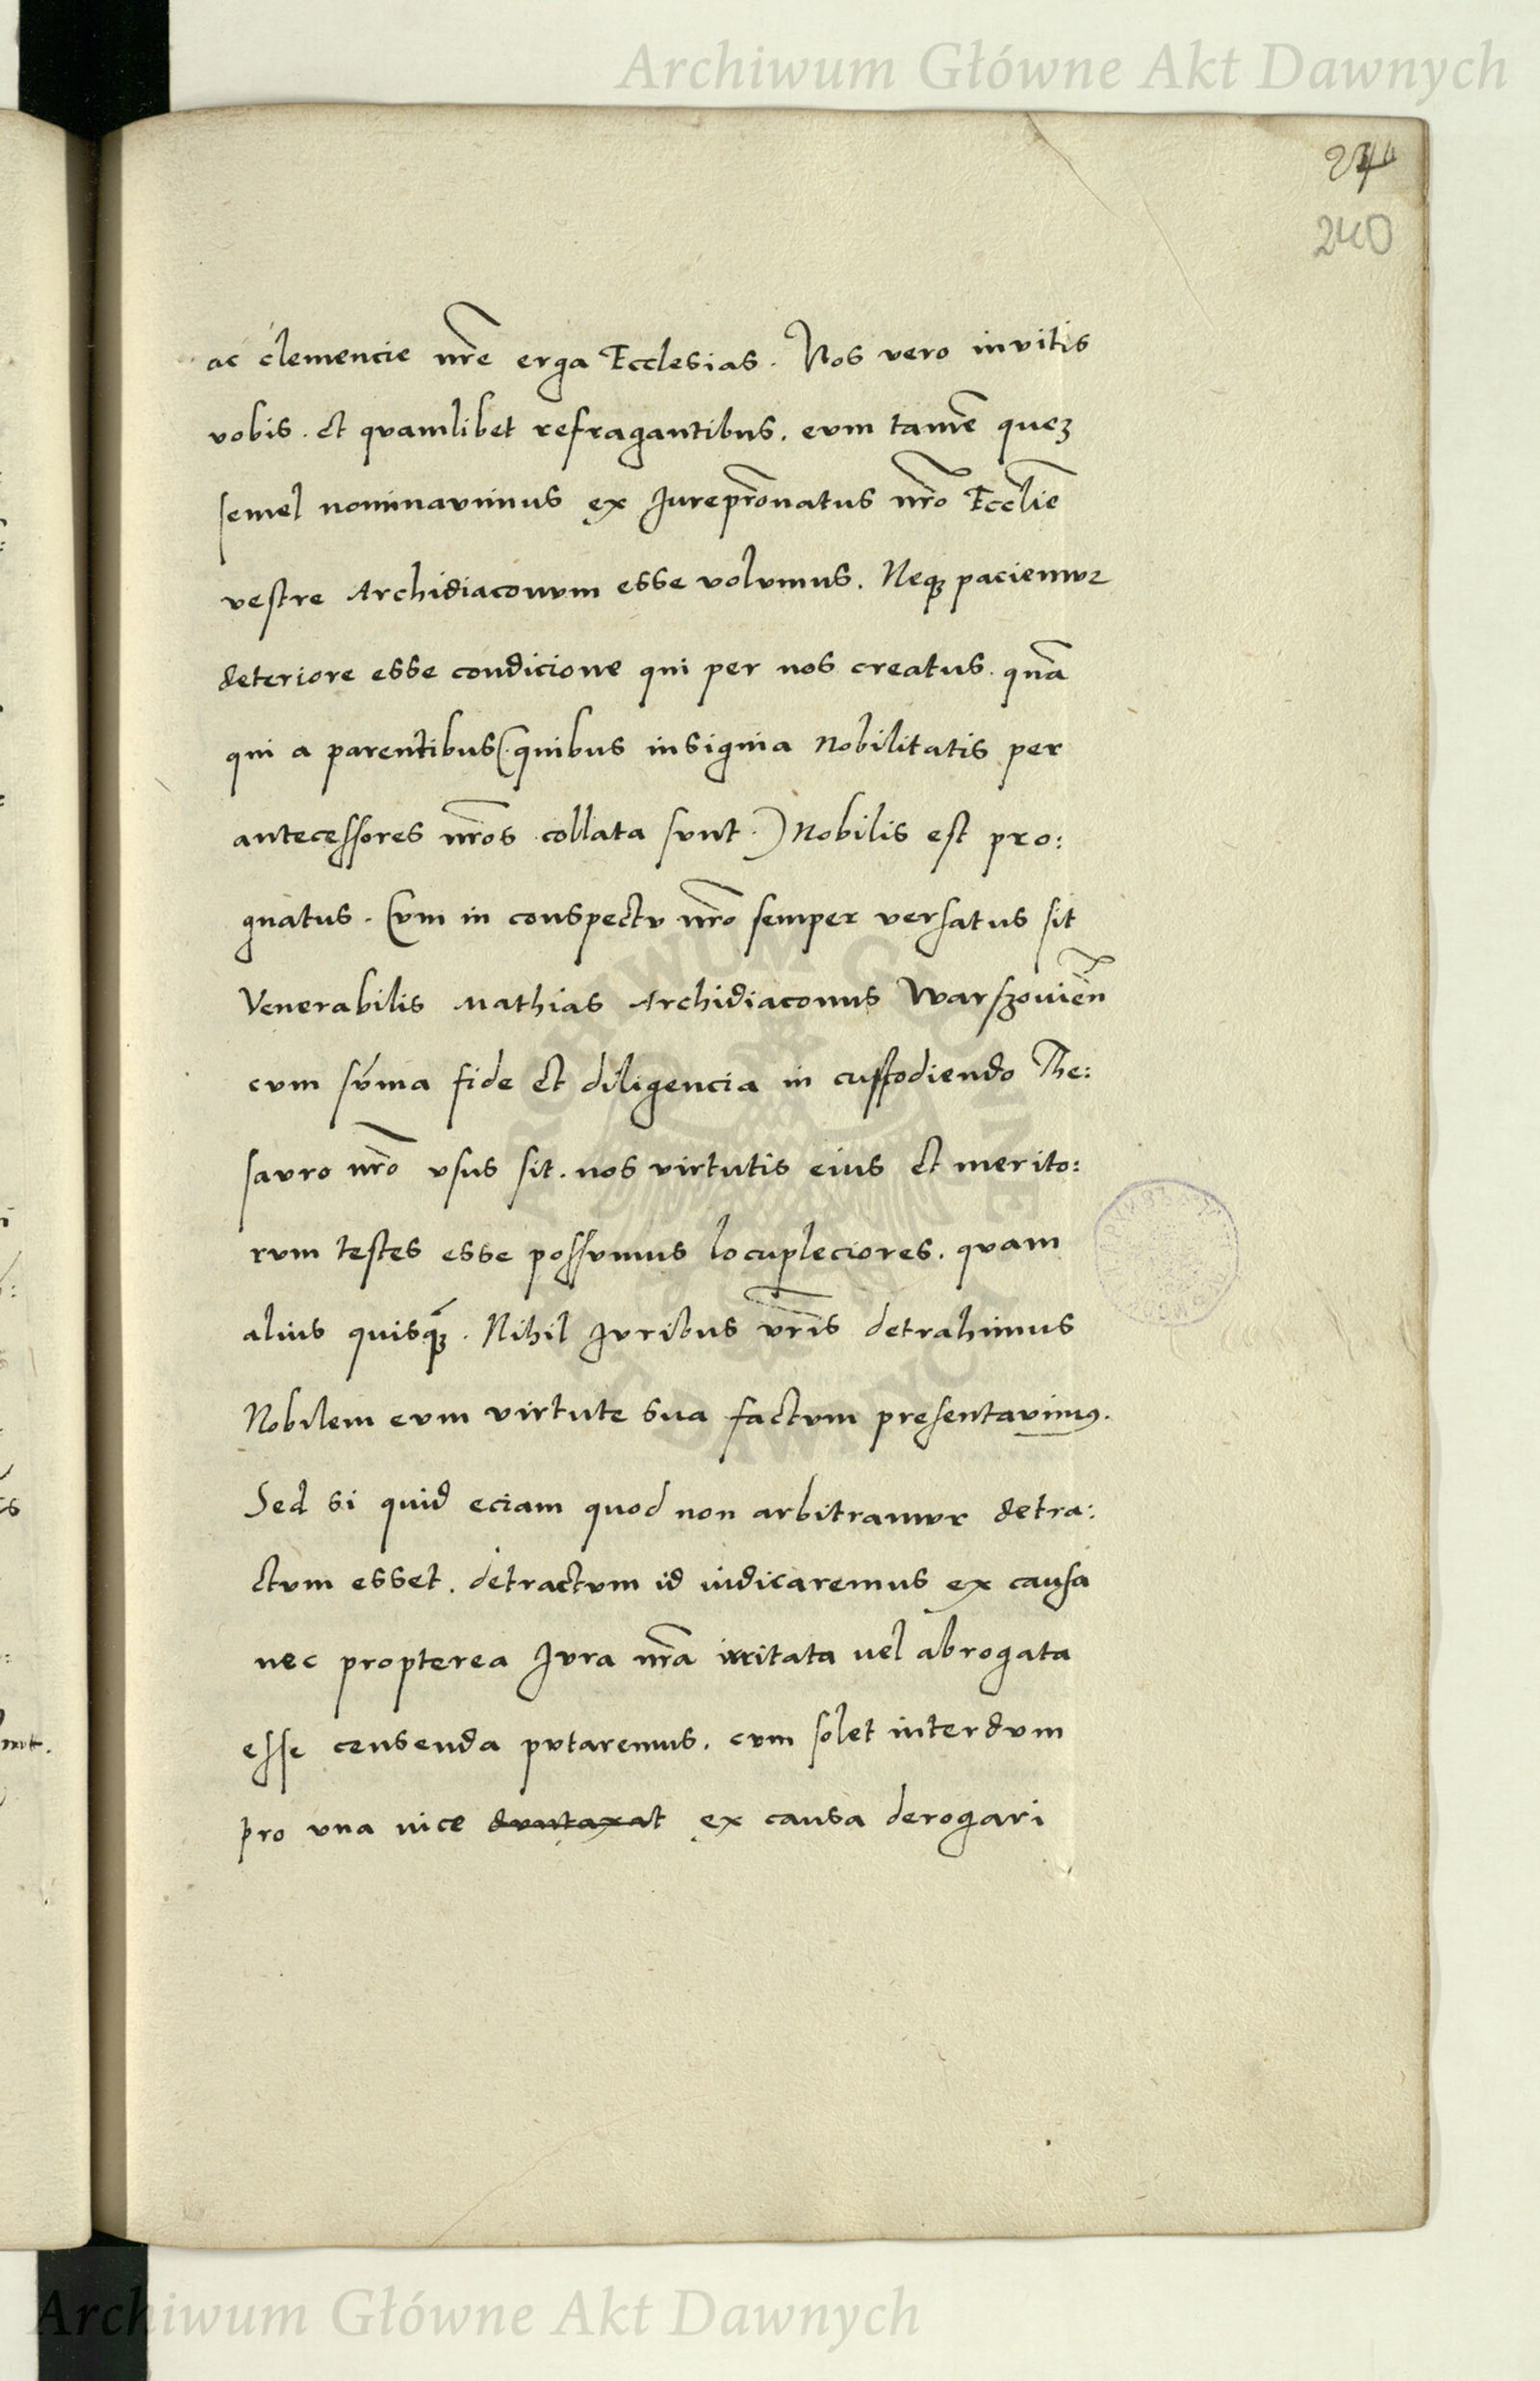 Archiwum Główne Akt Dawnych
240
ac clemencie nr̃e erga Ecclesias. Nos vero invitis
vobis. et quamlibet refragantibus. eum tamẽ quez
semel nominavimus ex Jurepr̃onatus nr̃o Ecclie̅
vestre Archidiaconum esse volumus. Neqz paciemur
deteriore esse condicione qui per nos creatus. qua̅
qui a parentibus (quibus insignia Nobilitatis per
antecessores nr̃os collata sunt.) Nobilis est pro:
gnatus. Cum in conspectu nr̃o semper versatus sit
Venerabilis Mathias Archidiaconus Warszovien̅
cum sũma fide et diligencia in custodiendo The:
sauro nr̃o usus sit. nos virtutis eius et merito:
rum testes esse possumus locupleciores. quam
alius quisqz. Nihil Juribus vr̃is detrahimus
Nobilem eum virtute sua factum presentavimus.
Sed si quid eciam quod non arbitramur detra:
ctum esset. detractum id iudicaremus ex causa
nec propterea Jura nr̃a irritata vel abrogata
esse censenda putaremus. cum solet interdum
pro una vice duntaxat ex causa derogari
Archiwum Główne Akt Dawnych